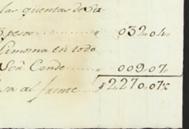 las quentas de Sta
3 pesos 032.04
Limosna en todo
Son Conde 009.07
va al frente $2270.07